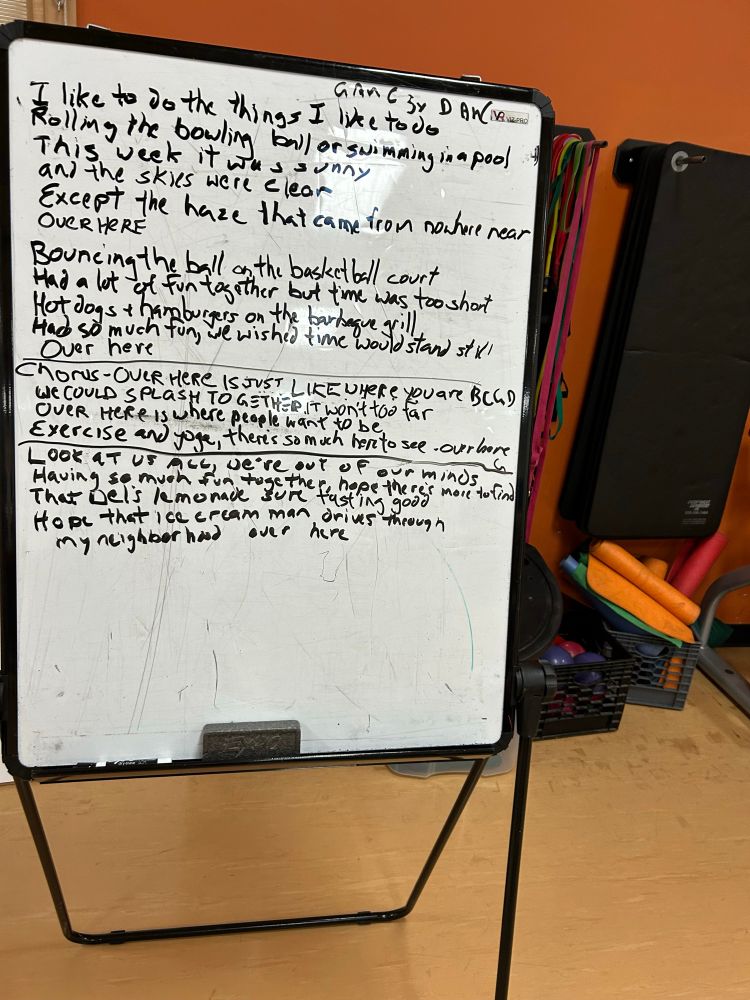 GAMC 3x D AWC
VIZ-PRO
I like to do the things I like to do
Rolling the bowling ball or swimming in a pool
This week it was sunny
and the skies were clear
Except the haze that came from nowhere near
OVER HERE
Bouncing the ball on the basketball court
Had a lot of fun together but time was too short
Hot dogs + hamburgers on the barbeque grill
Had so much fun, we wished time would stand still
Over here
Chorus - OVER HERE IS JUST LIKE WHERE you are
WE COULD SPLASH TO GETHER, IT won't too far
OVER HERE is where people want to be
Exercise and yoga, there's so much here to see - over here
LOOK AT US ALL, we're out of our minds
Having so much fun together, hope there's more to find
That Del's lemonade sure tasting good
Hope that ice cream man drives through
my neighborhood over here